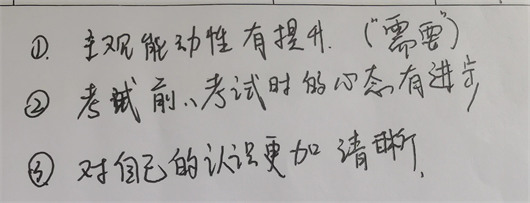 ①. 主观能动性有提升.（"需要"）
② 考试前、考试时的心态有进步
③ 对自己的认识更加清晰.